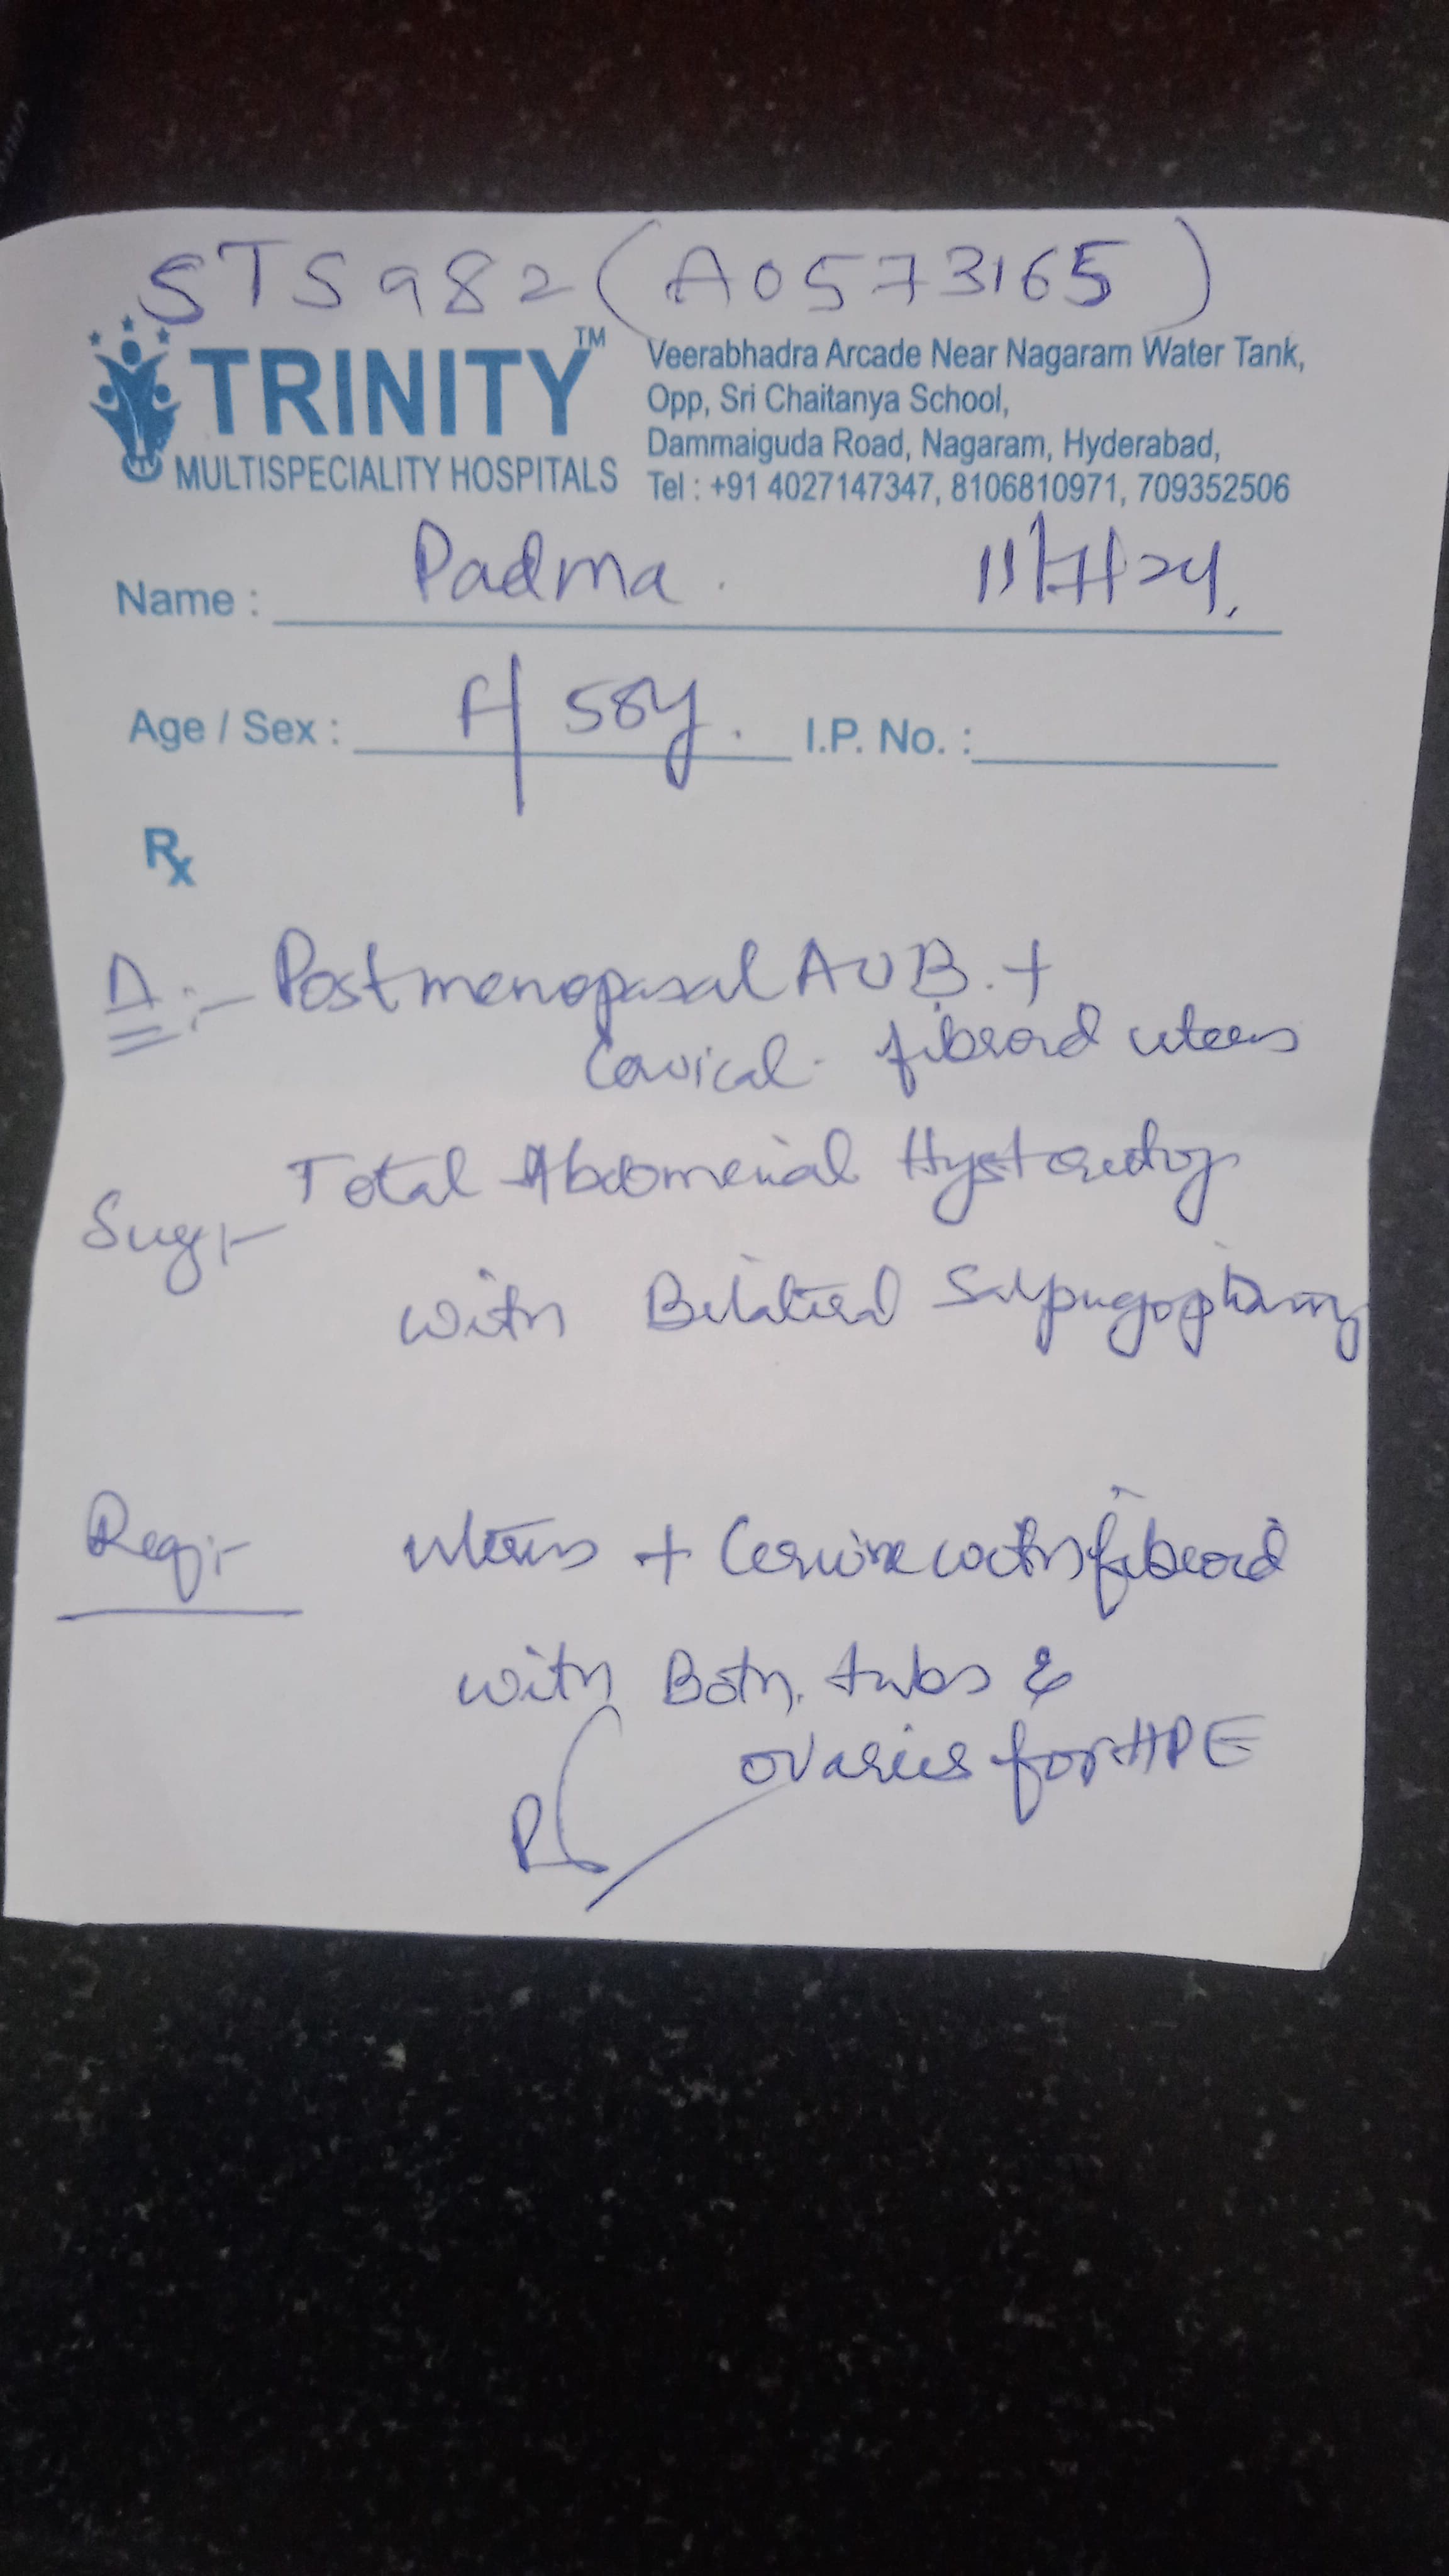 STS982 (A0573165)
TRINITY™
MULTISPECIALITY HOSPITALS
Veerabhadra Arcade Near Nagaram Water Tank,
Opp, Sri Chaitanya School,
Dammaiguda Road, Nagaram, Hyderabad,
Tel : +91 4027147347, 8106810971, 709352506
Name : Padma. 11/7/24.
Age / Sex : F/58y. I.P. No. :
Rx
D:- Postmenopasal AUB. +
Cervical. fibroid uterus
Sug:- Total Abdominal
with Bilateral
Req:- uterus + Cervix with fibroid
with Both tubs &
ovaries for HPE